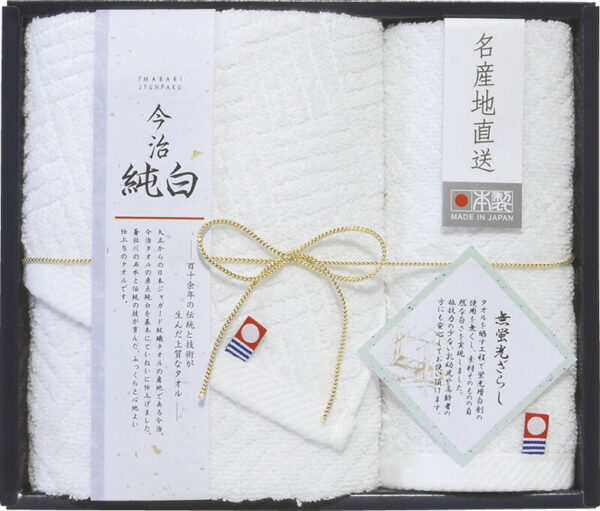 IMABARI
JYUNPAKU
今治
純白
大正からの日本ジャガード紋織タオルの産地である今治。
今治タオルの原点純白を基本にていねいに仕上げました。
蒼社川の名水と伝統の技が育んだ、ふっくらと心地よい
仕上りのタオルです。
百十余年の伝統と技術が
生んだ上質なタオル
名産地直送
日本製
MADE IN JAPAN
無蛍光ざらし
タオルを晒す工程で蛍光増白剤の
使用を無くし、素材そのものの自
然な白さを実現しました。
抵抗力の少ない乳幼児や高齢者の
方にも安心してお使い頂けます。